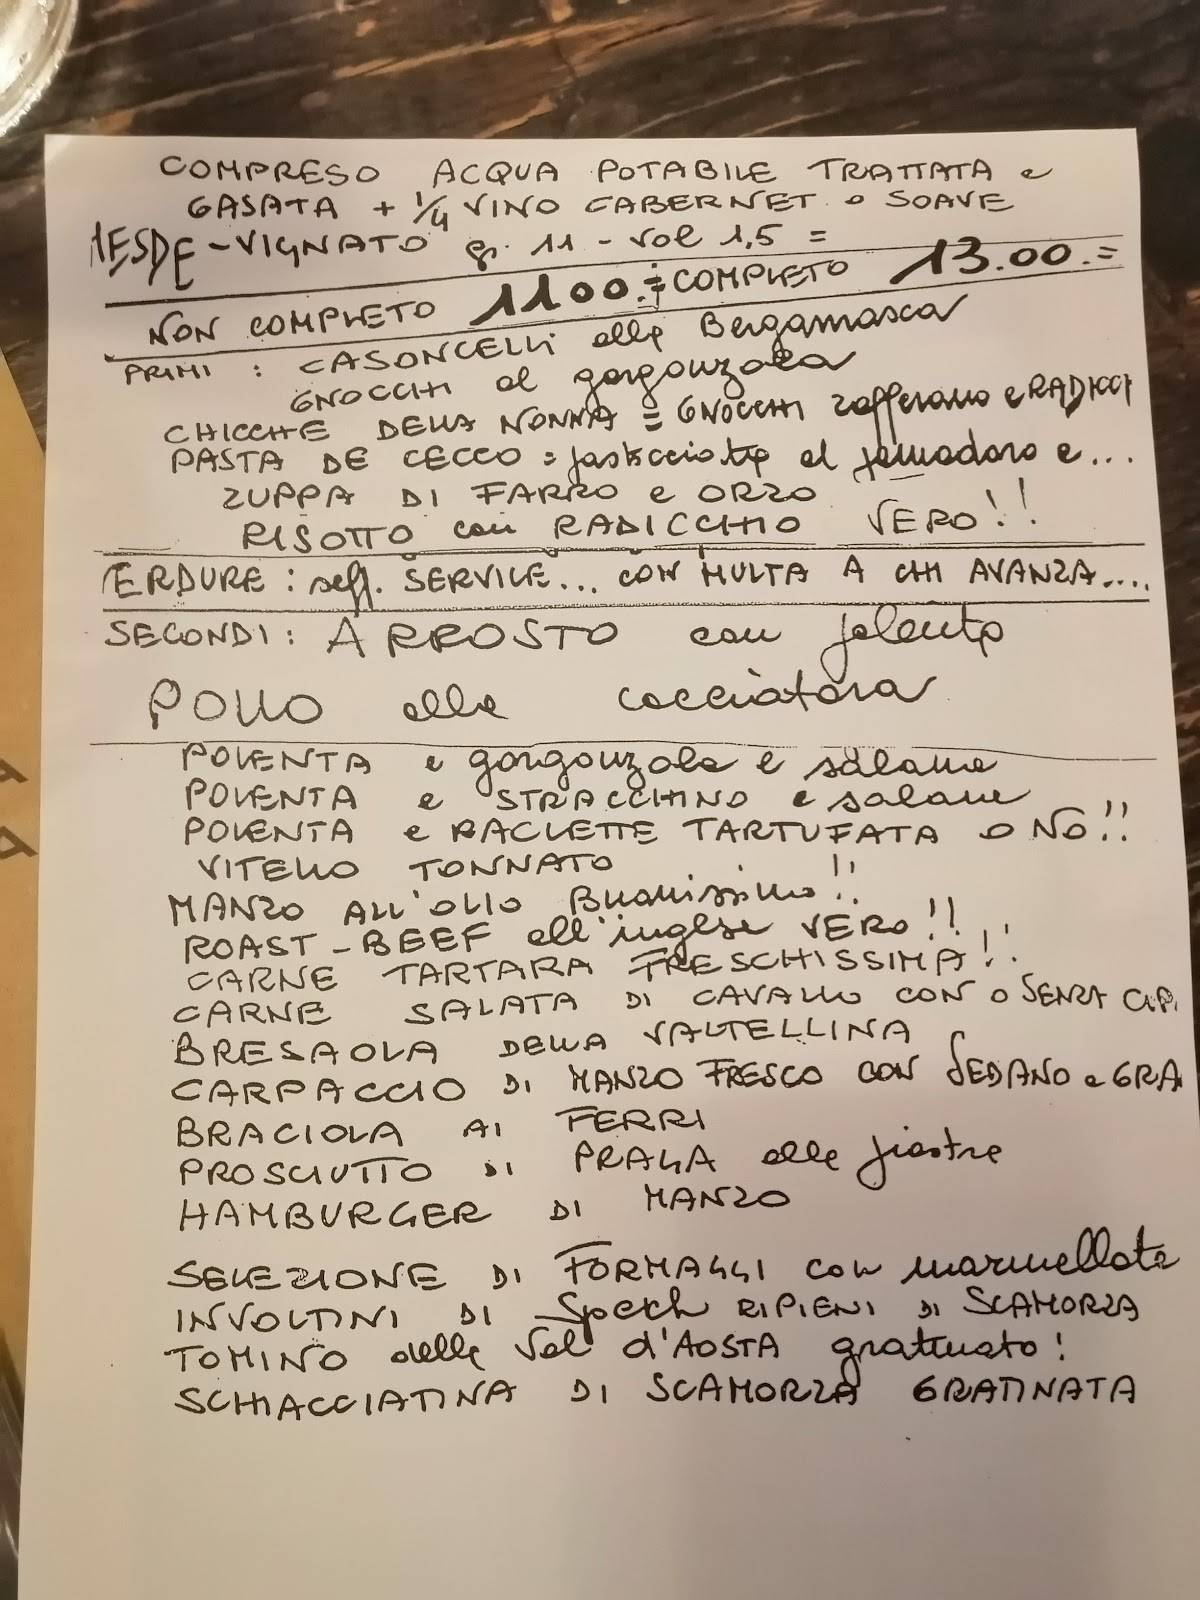 COMPRESO ACQUA POTABILE TRATTATA e
GASATA + 1/4 VINO CABERNET o SOAVE
-VIGNATO gr. 11 - vol 1,5 =
NON COMPLETO 1100.= COMPLETO 13.00.=
PRIMI: CASONCELLI alla Bergamasca
GNOCCHI al gorgonzola
CHICCHE DELLA NONNA = GNOCCHI zafferano e RADICCI
PASTA DE CECCO = pasticciata al pomodoro e...
ZUPPA DI FARRO e ORZO
RISOTTO con RADICCHIO VERO!!
ERDURE: self. SERVICE... CON MULTA A CHI AVANZA....
SECONDI: ARROSTO con polenta
POLLO alla cacciatora
POLENTA e gorgonzola e salame
POLENTA e STRACCHINO e salame
POLENTA e RACLETTE TARTUFATA o NO!!
VITELLO TONNATO
MANZO ALL'OLIO Buonissimo!!
ROAST-BEEF all'inglese VERO!!
CARNE TARTARA FRESCHISSIMA!!
CARNE SALATA DI CAVALLO CON o SENZA CIP.
BRESAOLA DELLA VALTELLINA
CARPACCIO DI MANZO FRESCO CON SEDANO e GRA
BRACIOLA AI FERRI
PROSCIUTTO DI PRAGA alle piastre
HAMBURGER DI MANZO
SELEZIONE DI FORMAGGI con marmellate
INVOLTINI DI Speck RIPIENI DI SCAMORZA
TOMINO della Val d'AOSTA gratinato!
SCHIACCIATINA DI SCAMORZA GRATINATA